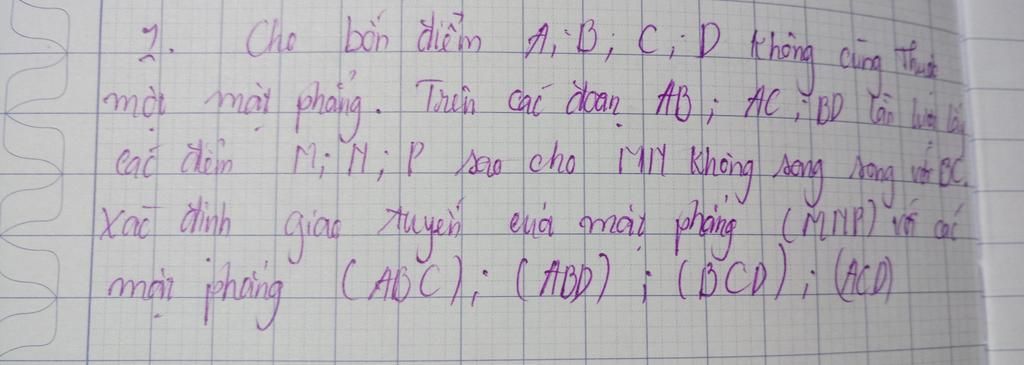 2. Cho bốn điểm A; B; C; D không cùng thuộc
một mặt phẳng. Trên các đoạn AB; AC; BD lần lượt lấy
các điểm M; N; P sao cho MN không song song với BC.
Xác định giao tuyến của mặt phẳng (MNP) với các
mặt phẳng (ABC); (ABD); (BCD); (ACD)